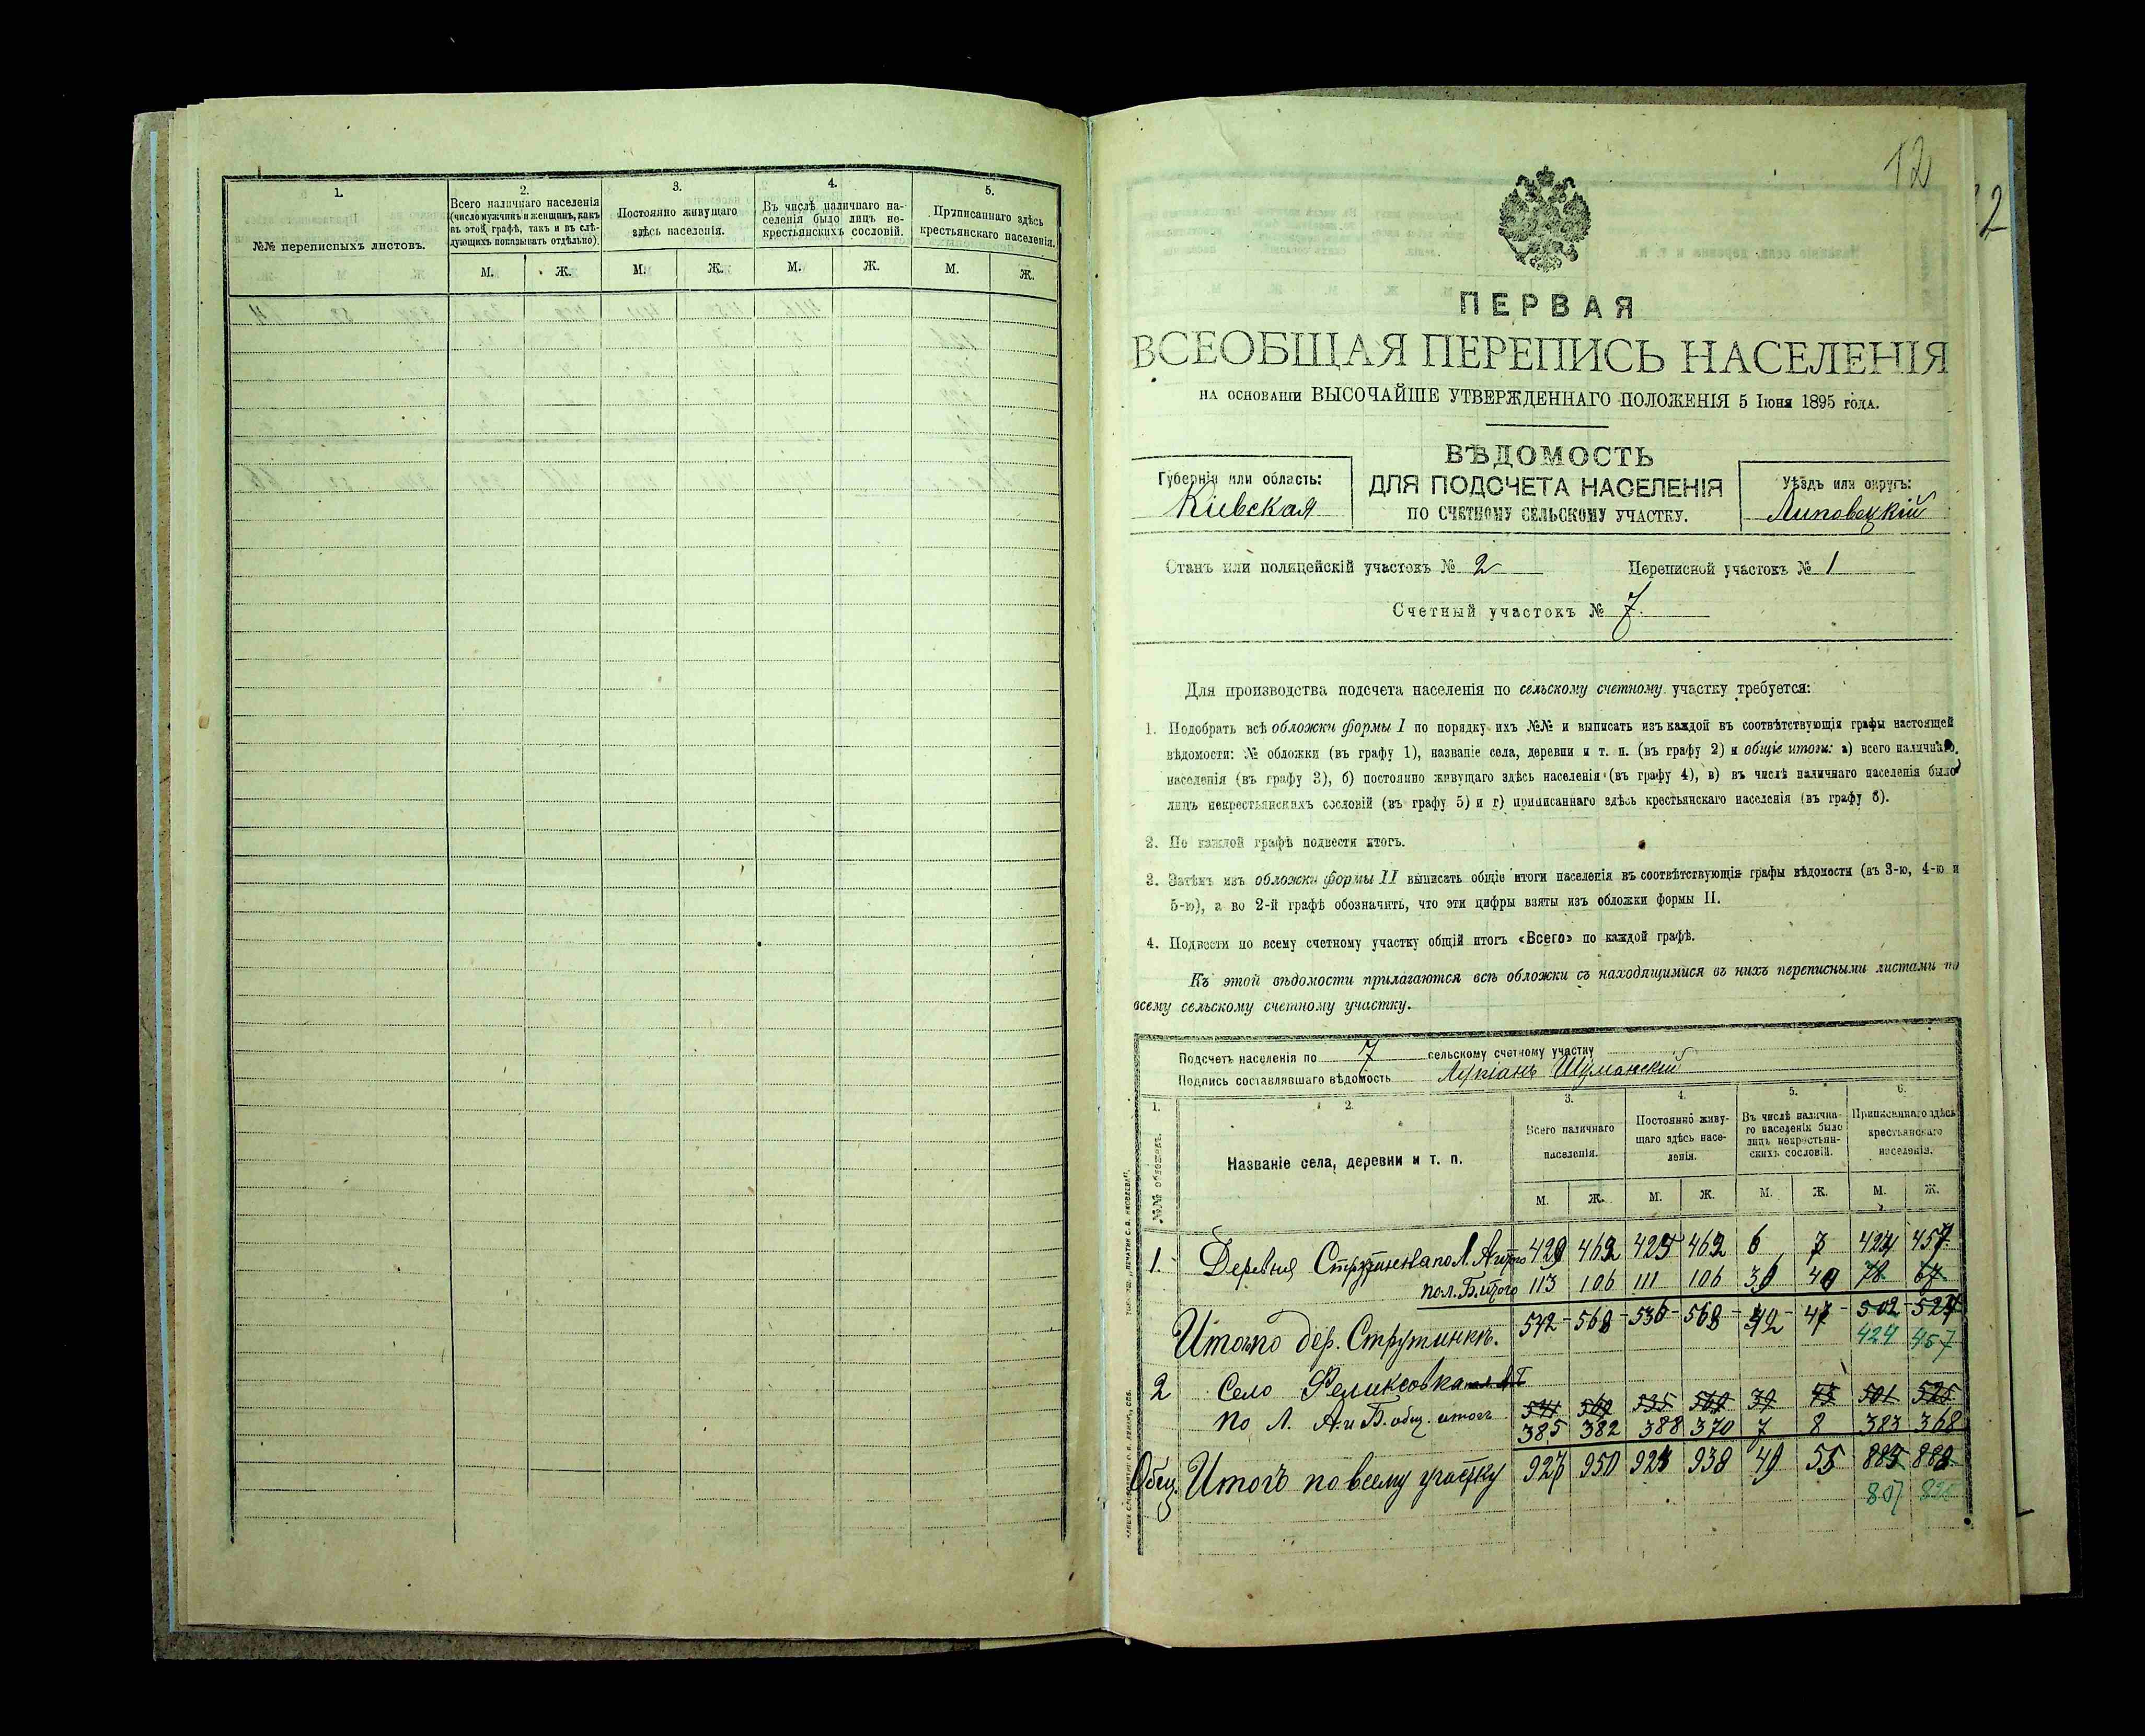 1.
№№ переписныхъ листовъ.
2.
Всего наличнаго населенія
(число мужчинъ и женщинъ, какъ
въ этой графѣ, такъ и въ слѣ-
дующихъ показывать отдѣльно).
3.
Постоянно живущаго
здѣсь населенія.
4.
Въ числѣ наличнаго на-
селенія было лицъ не-
крестьянскихъ сословій.
5.
Приписаннаго здѣсь
крестьянскаго населенія.
М. Ж. М. Ж. М. Ж. М. Ж.
12
2
ПЕРВАЯ
ВСЕОБЩАЯ ПЕРЕПИСЬ НАСЕЛЕНІЯ
НА ОСНОВАНІИ ВЫСОЧАЙШЕ УТВЕРЖДЕННАГО ПОЛОЖЕНІЯ 5 Іюня 1895 года.
ВѢДОМОСТЬ
ДЛЯ ПОДСЧЕТА НАСЕЛЕНІЯ
ПО СЧЕТНОМУ СЕЛЬСКОМУ УЧАСТКУ.
Губернія или область:
Кіевская
Уѣздъ или округъ:
Липовецкій
Станъ или полицейскій участокъ № 2
Переписной участокъ № 1
Счетный участокъ № 7.
Для производства подсчета населенія по сельскому счетному участку требуется:
1. Подобрать всѣ обложки формы I по порядку ихъ №№ и выписать изъ каждой въ соотвѣтствующія графы настоящей
вѣдомости: № обложки (въ графу 1), названіе села, деревни и т. п. (въ графу 2) и общіе итоги: а) всего наличнаго
населенія (въ графу 3), б) постоянно живущаго здѣсь населенія (въ графу 4), в) въ числѣ наличнаго населенія было
лицъ некрестьянскихъ сословій (въ графу 5) и г) приписаннаго здѣсь крестьянскаго населенія (въ графу 6).
2. По каждой графѣ подвести итогъ.
3. Затѣмъ изъ обложки формы II выписать общіе итоги населенія въ соотвѣтствующія графы вѣдомости (въ 3-ю, 4-ю и
5-ю), а во 2-й графѣ обозначить, что эти цифры взяты изъ обложки формы II.
4. Подвести по всему счетному участку общій итогъ «Всего» по каждой графѣ.
Къ этой вѣдомости прилагаются всѣ обложки съ находящимися въ нихъ переписными листами по
всему сельскому счетному участку.
Подсчетъ населенія по 7 сельскому счетному участку
Подпись составлявшаго вѣдомость Лукіанъ Шуманскій
1.
№№ обложекъ.
2.
Названіе села, деревни и т. п.
3.
Всего наличнаго
населенія.
4.
Постоянно живу-
щаго здѣсь насе-
ленія.
5.
Въ числѣ налична-
го населенія было
лицъ некрестьян-
скихъ сословій.
6.
Приписаннаго здѣсь
крестьянскаго
населенія.
М. Ж. М. Ж. М. Ж. М. Ж.
1. Деревня Струтинка по Л. А итого 429 462 425 462 6 7 424 457
по л. Б. итого 113 106 111 106 36 40 78 67
Итого по дер. Струтинкѣ. 542 568 536 568 42 47 502 524
424 457
2 Село Феликсовка
по Л. А. и Б. общ. итогъ 385 382 388 370 7 8 383 368
Общ. Итогъ по всему участку 927 950 924 938 49 55 885
807